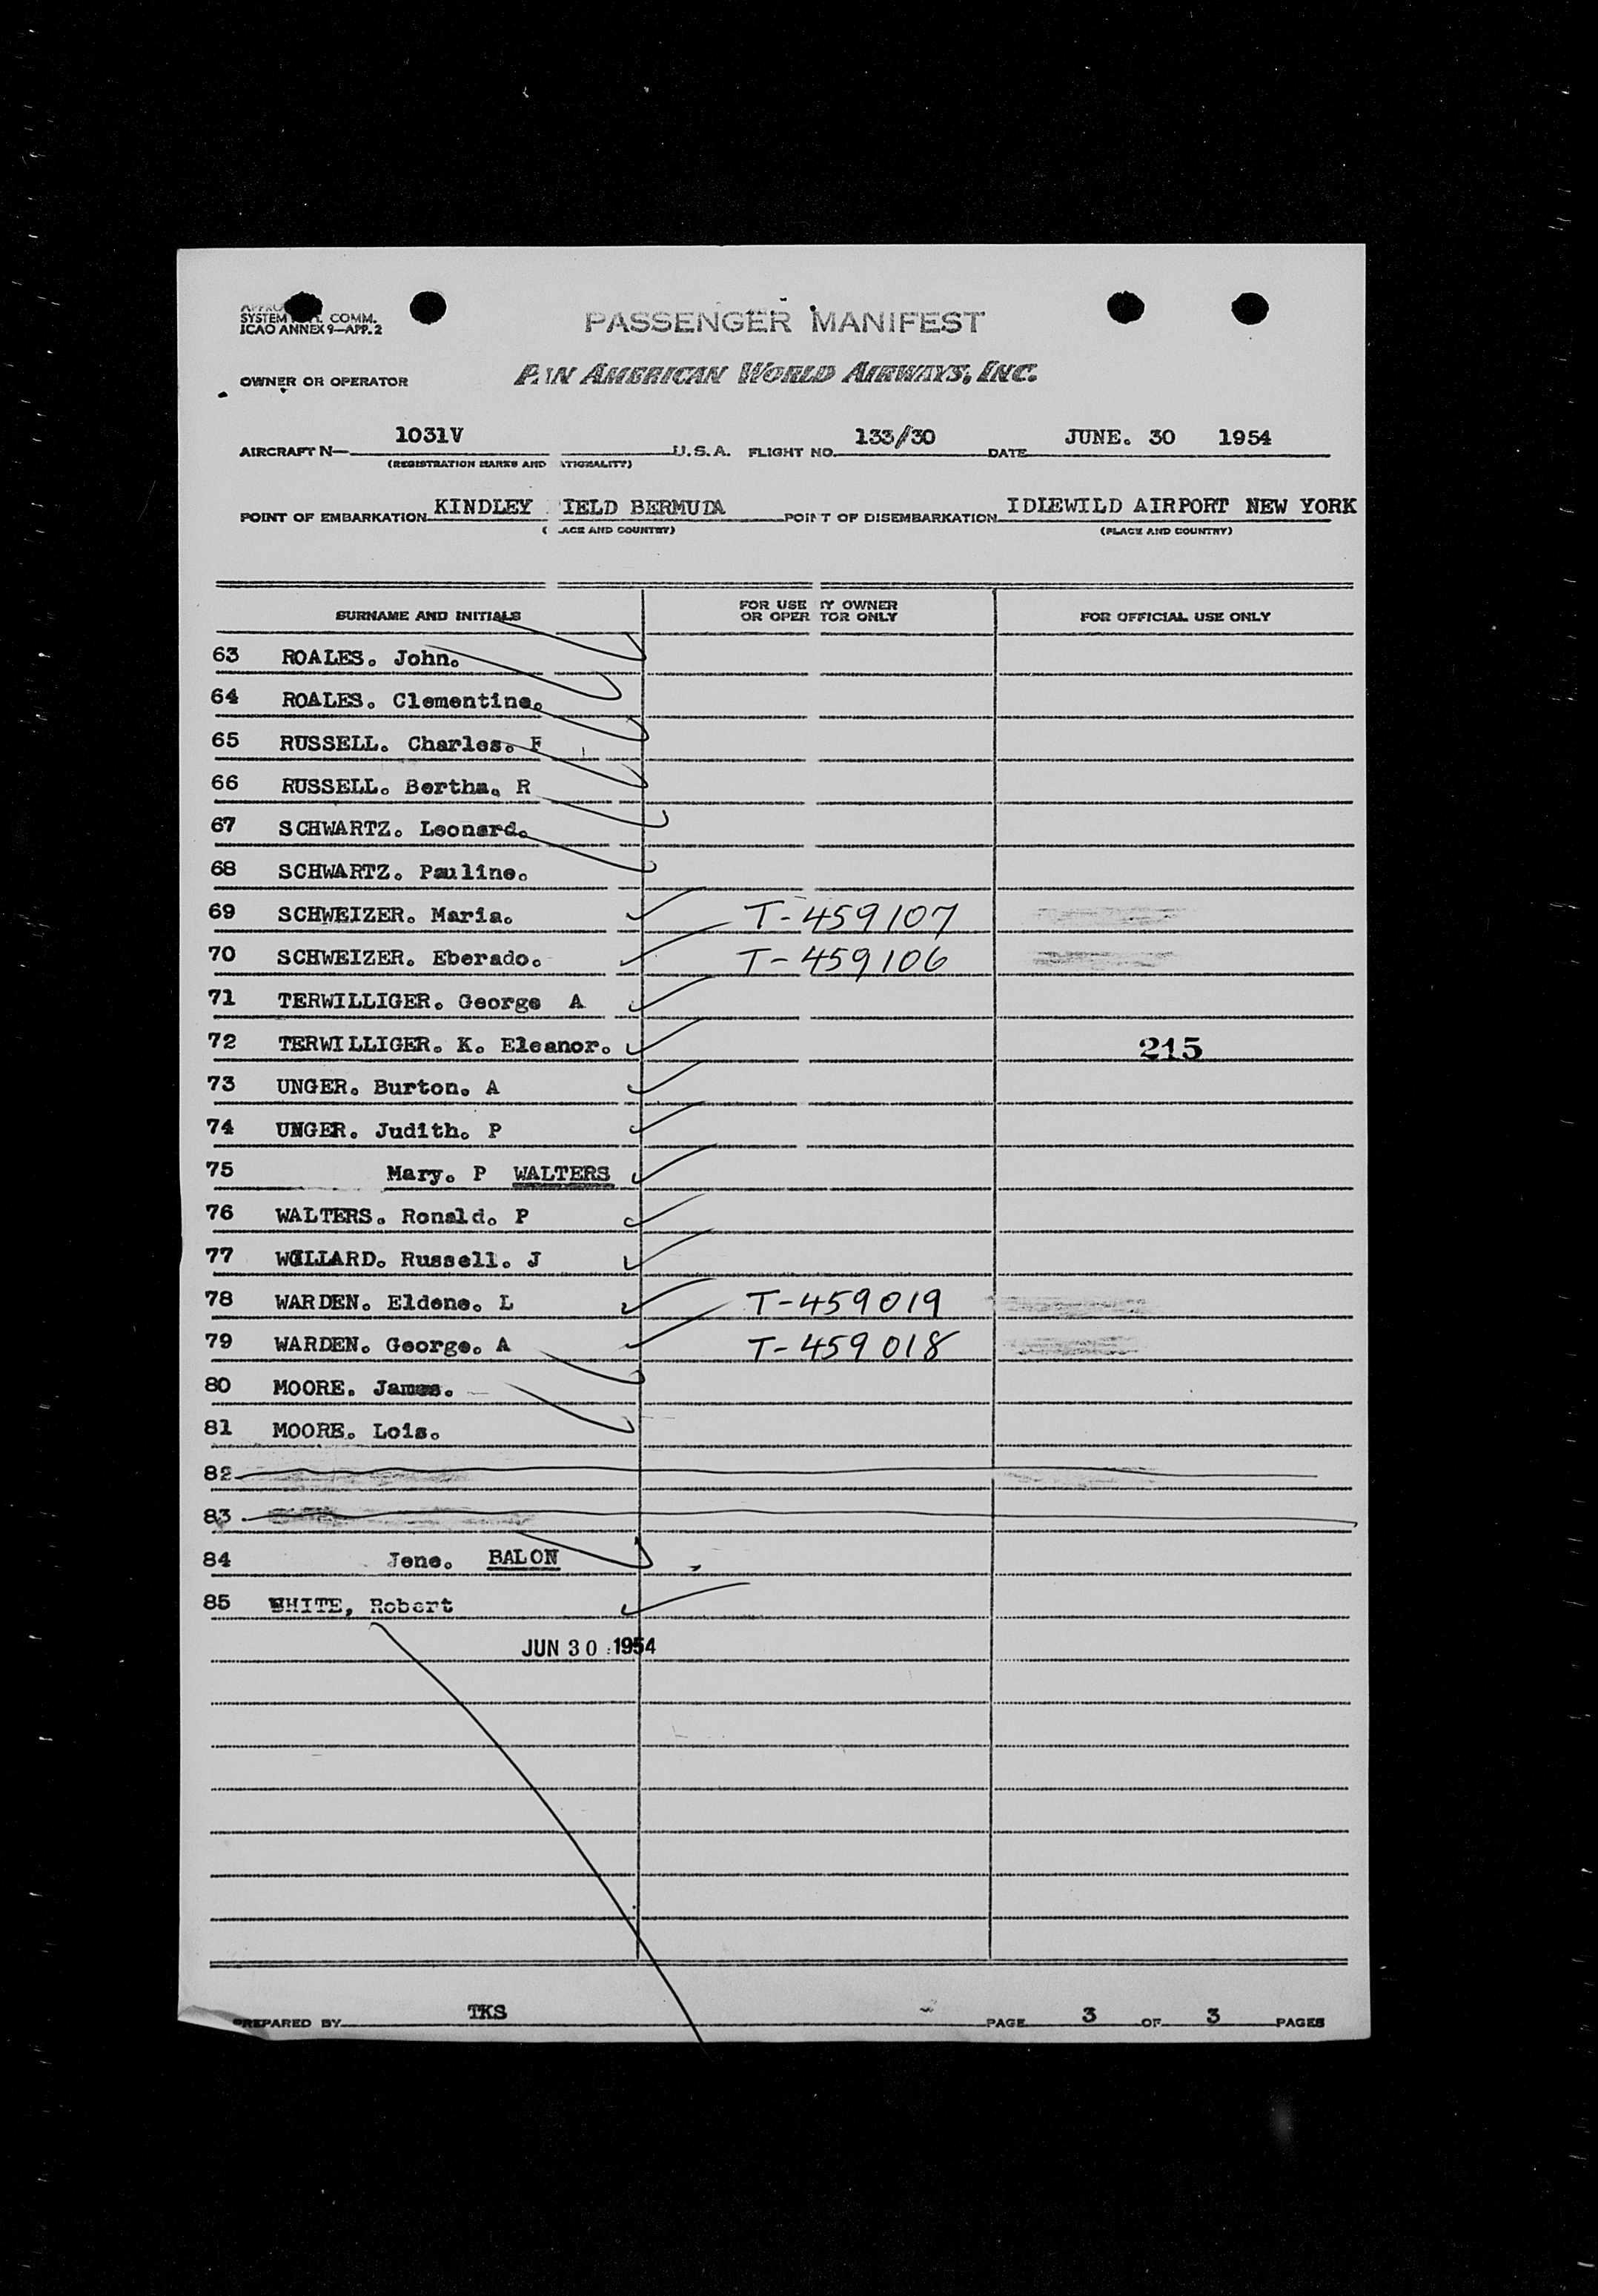 SYSTEM COMM.
ICAO ANNEX 9—APP. 2
PASSENGER MANIFEST
OWNER OR OPERATOR PAN AMERICAN WORLD AIRWAYS, INC.
AIRCRAFT N— 1031V U.S.A. FLIGHT NO. 133/30 DATE JUNE. 30 1954
(REGISTRATION MARKS AND NATIONALITY)
POINT OF EMBARKATION KINDLEY IELD BERMUDA POINT OF DISEMBARKATION IDLEWILD AIRPORT NEW YORK
(PLACE AND COUNTRY) (PLACE AND COUNTRY)
SURNAME AND INITIALS FOR USE BY OWNER OR OPERATOR ONLY FOR OFFICIAL USE ONLY
63 ROALES. John.
64 ROALES. Clementine.
65 RUSSELL. Charles. F
66 RUSSELL. Bertha. R
67 SCHWARTZ. Leonard.
68 SCHWARTZ. Pauline.
69 SCHWEIZER. Maria. T-459107
70 SCHWEIZER. Eberado. T-459106
71 TERWILLIGER. George A
72 TERWILLIGER. K. Eleanor. 215
73 UNGER. Burton. A
74 UNGER. Judith. P
75 Mary. P WALTERS
76 WALTERS. Ronald. P
77 WILLARD. Russell. J
78 WARDEN. Eldene. L T-459019
79 WARDEN. George. A T-459018
80 MOORE. James.
81 MOORE. Lois.
82
83
84 Jene. BALON
85 WHITE, Robert
JUN 30 1954
PREPARED BY TKS PAGE 3 OF 3 PAGES